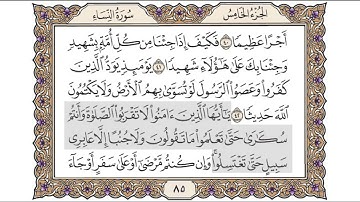 الجزء الخامس
سورة النساء
أَجْرًا عَظِيمًا ٤٠ فَكَيْفَ إِذَا جِئْنَا مِن كُلِّ أُمَّةٍ بِشَهِيدٍ
وَجِئْنَا بِكَ عَلَىٰ هَٰٓؤُلَآءِ شَهِيدًا ٤١ يَوْمَئِذٍ يَوَدُّ ٱلَّذِينَ
كَفَرُوا۟ وَعَصَوُا۟ ٱلرَّسُولَ لَوْ تُسَوَّىٰ بِهِمُ ٱلْأَرْضُ وَلَا يَكْتُمُونَ
ٱللَّهَ حَدِيثًا ٤٢ يَٰٓأَيُّهَا ٱلَّذِينَ ءَامَنُوا۟ لَا تَقْرَبُوا۟ ٱلصَّلَوٰةَ وَأَنتُمْ
سُكَٰرَىٰ حَتَّىٰ تَعْلَمُوا۟ مَا تَقُولُونَ وَلَا جُنُبًا إِلَّا عَابِرِى
سَبِيلٍ حَتَّىٰ تَغْتَسِلُوا۟ ۚ وَإِن كُنتُم مَّرْضَىٰٓ أَوْ عَلَىٰ سَفَرٍ أَوْ جَآءَ
٨٥